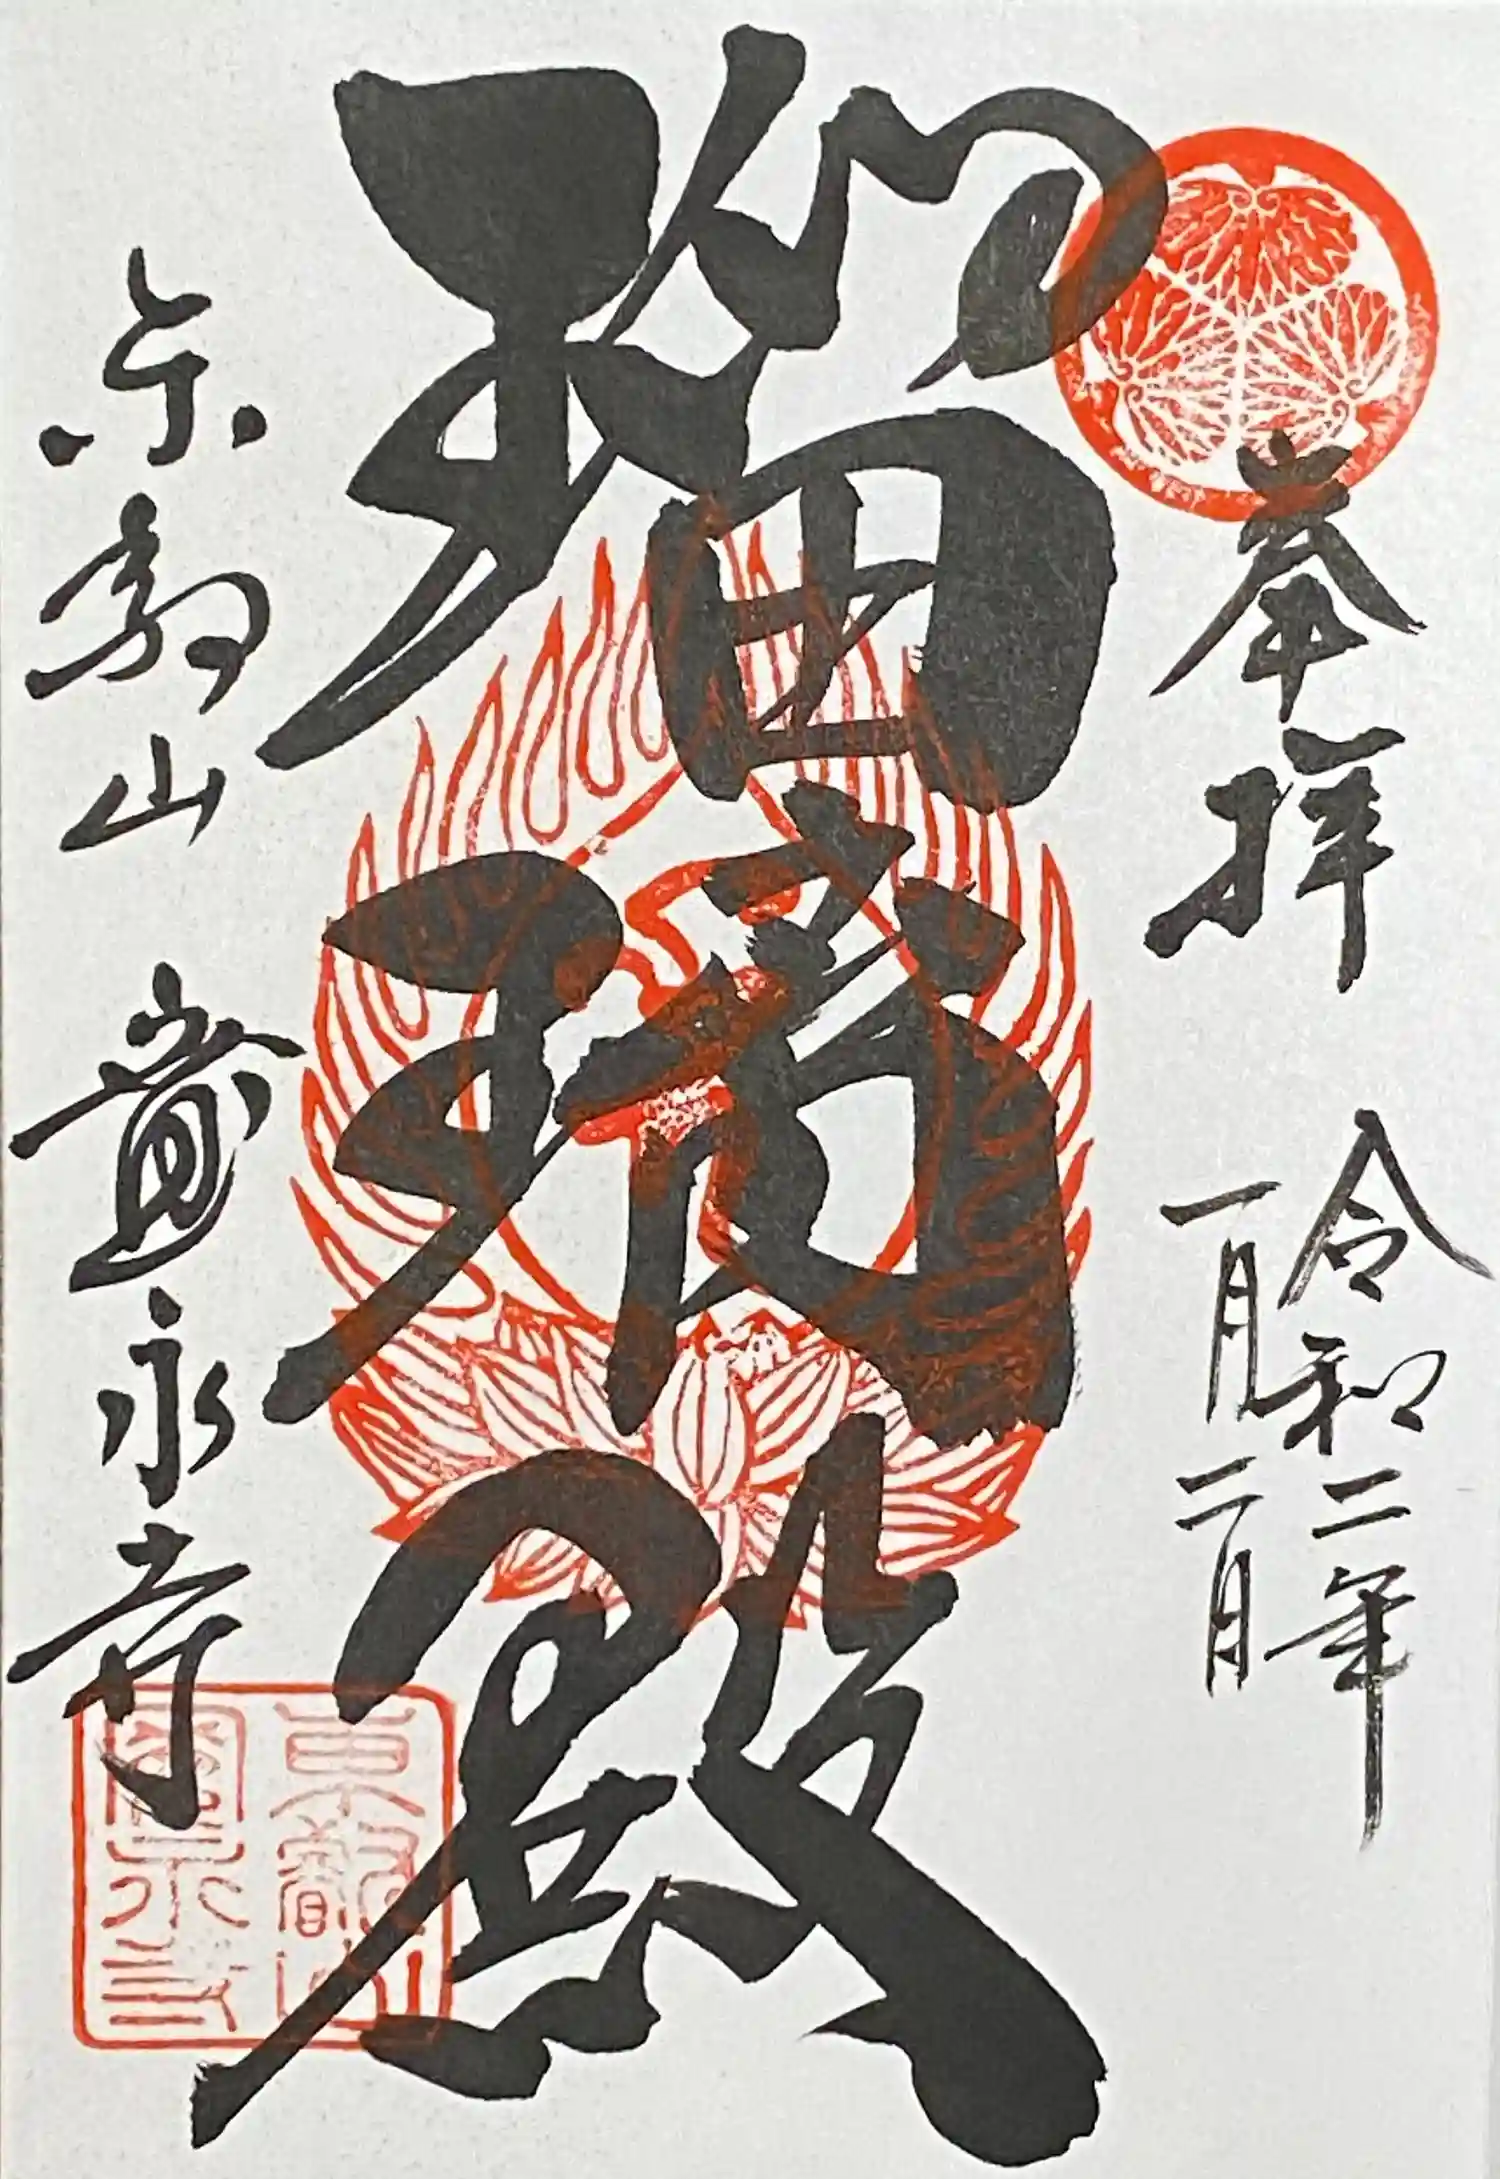 奉拝
令和二年
一月二日
瑠璃殿
東叡山 寛永寺
東叡山
寛永寺